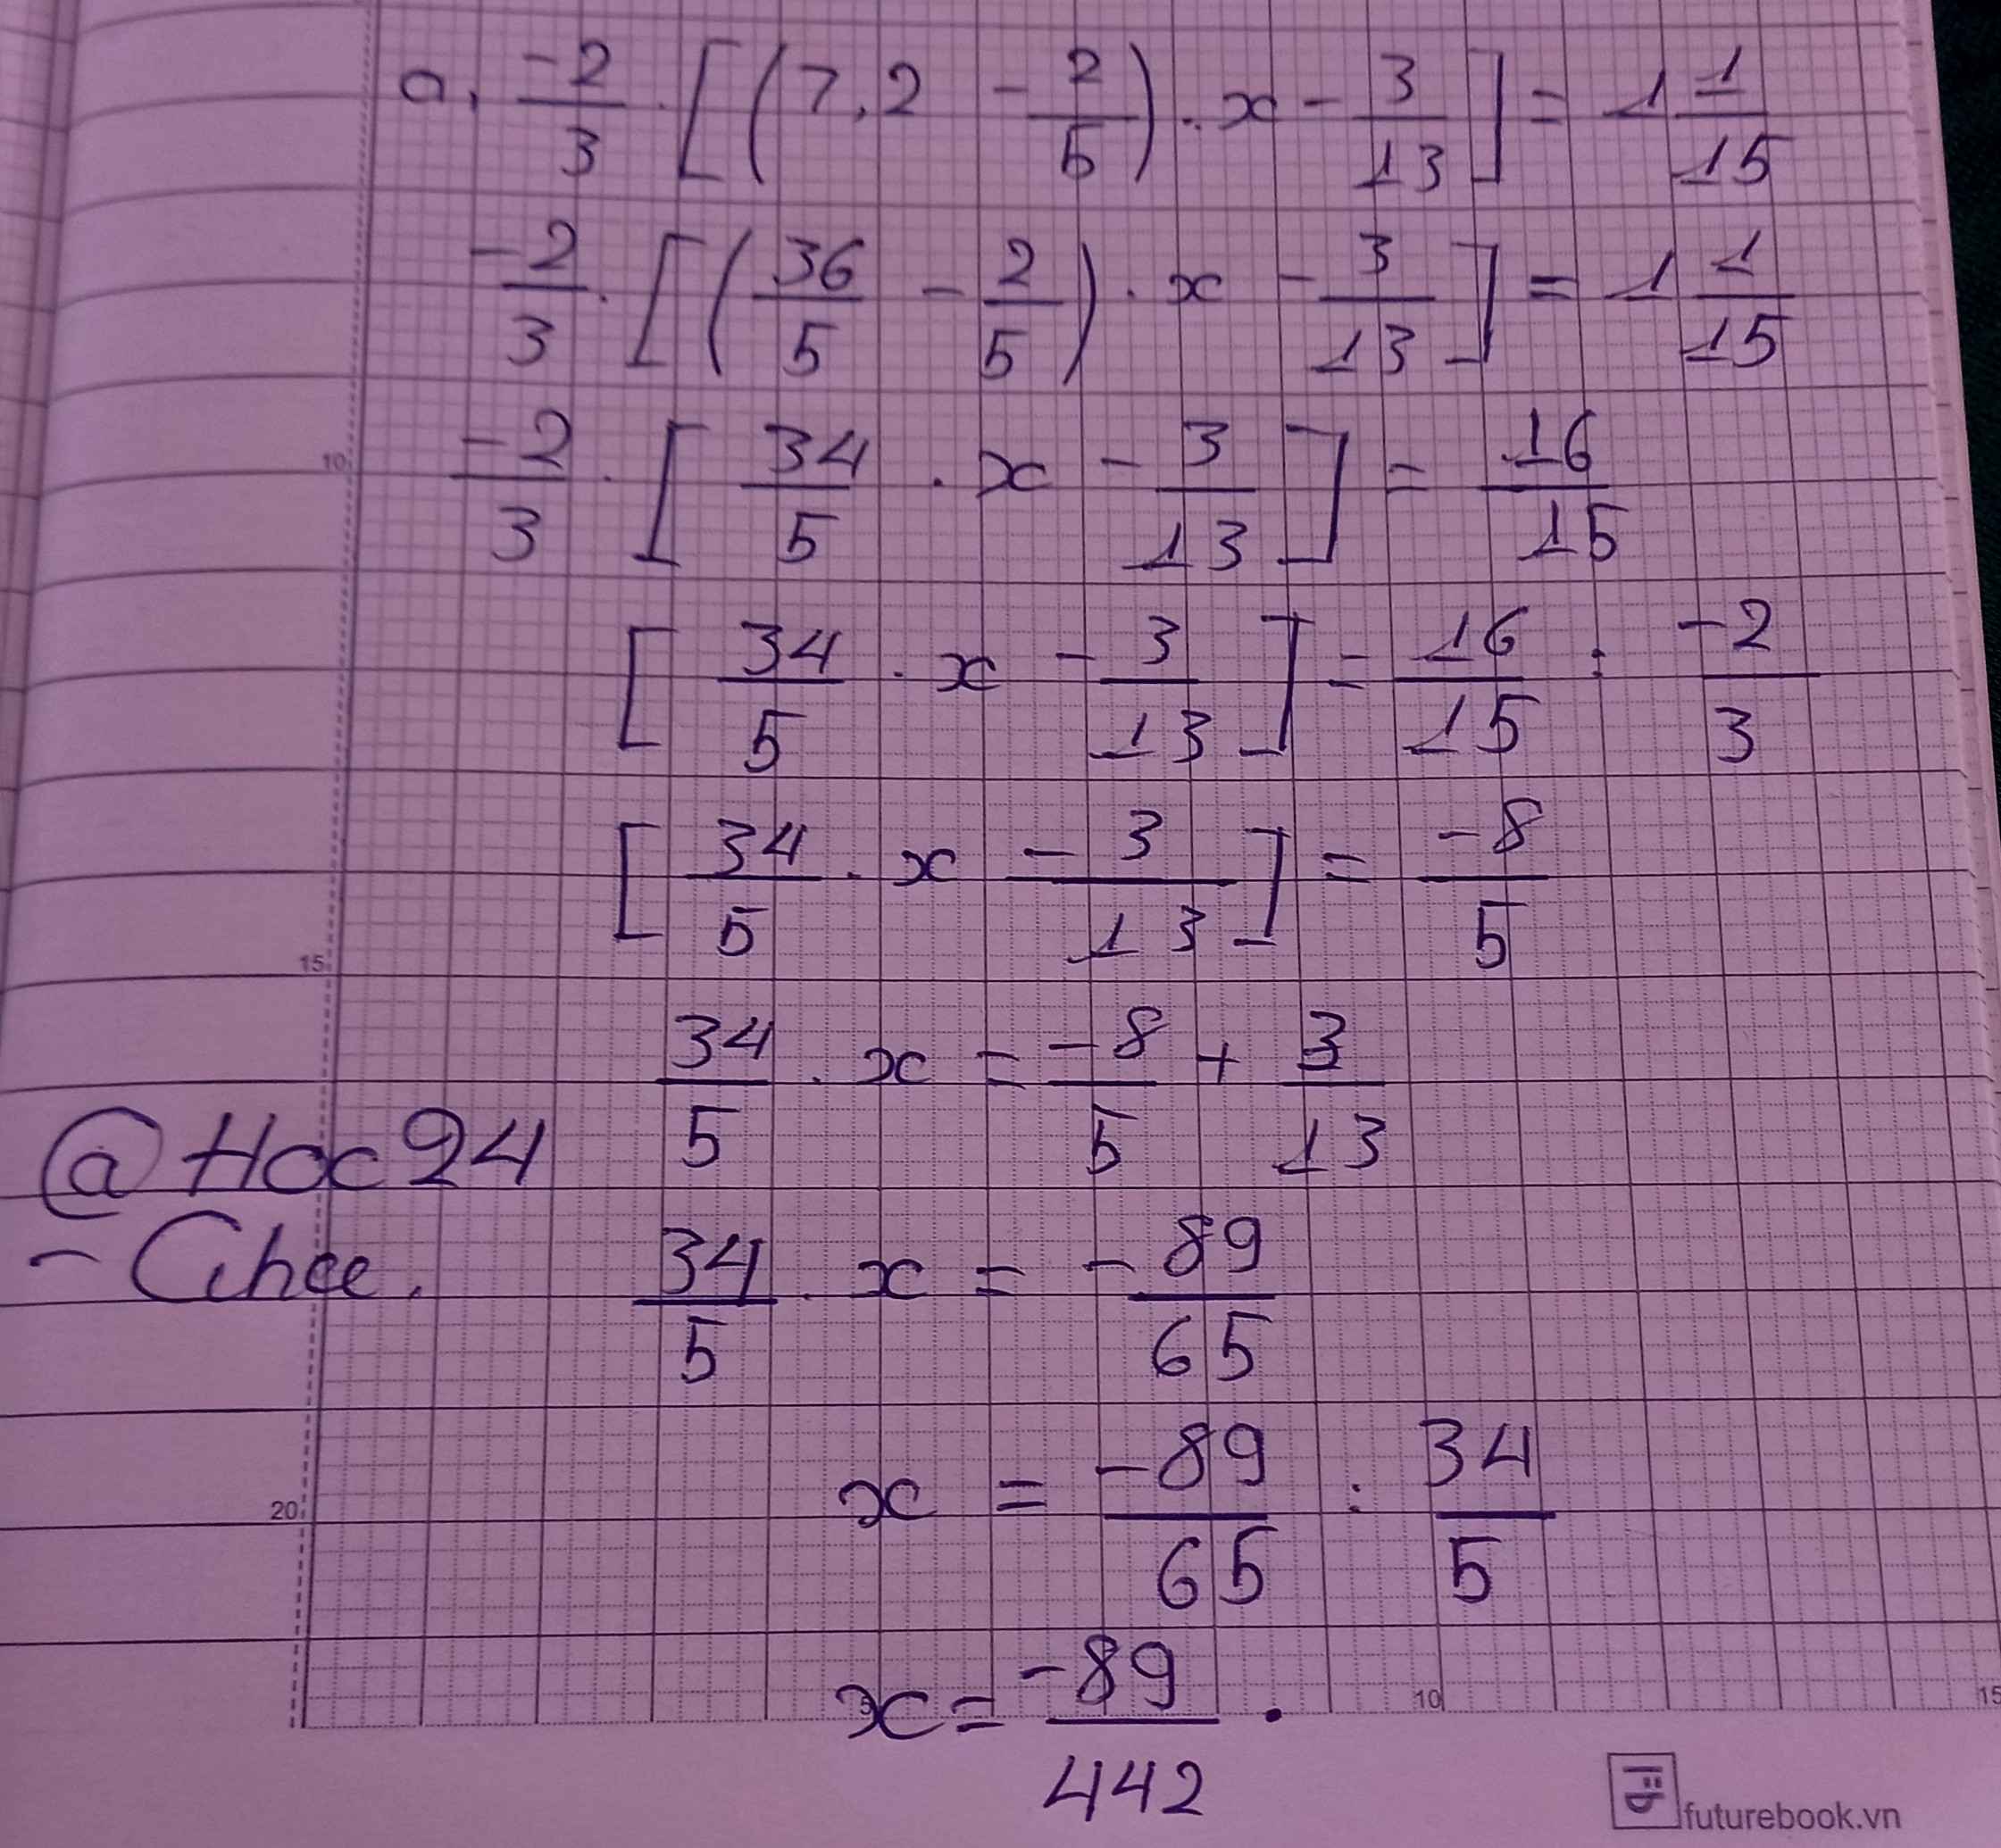 a, -2/3 . [(7,2 - 2/5) . x - 3/13] = 1 1/15
-2/3 . [(36/5 - 2/5) . x - 3/13] = 1 1/15
10
-2/3 . [34/5 . x - 3/13] = 16/15
[34/5 . x - 3/13] = 16/15 : -2/3
[34/5 . x - 3/13] = -8/5
15
34/5 . x = -8/5 + 3/13
@Hoc24
34/5 . x = -89/65
x = -89/65 : 34/5
20
x = -89/442 .
5 10 15
futurebook.vn